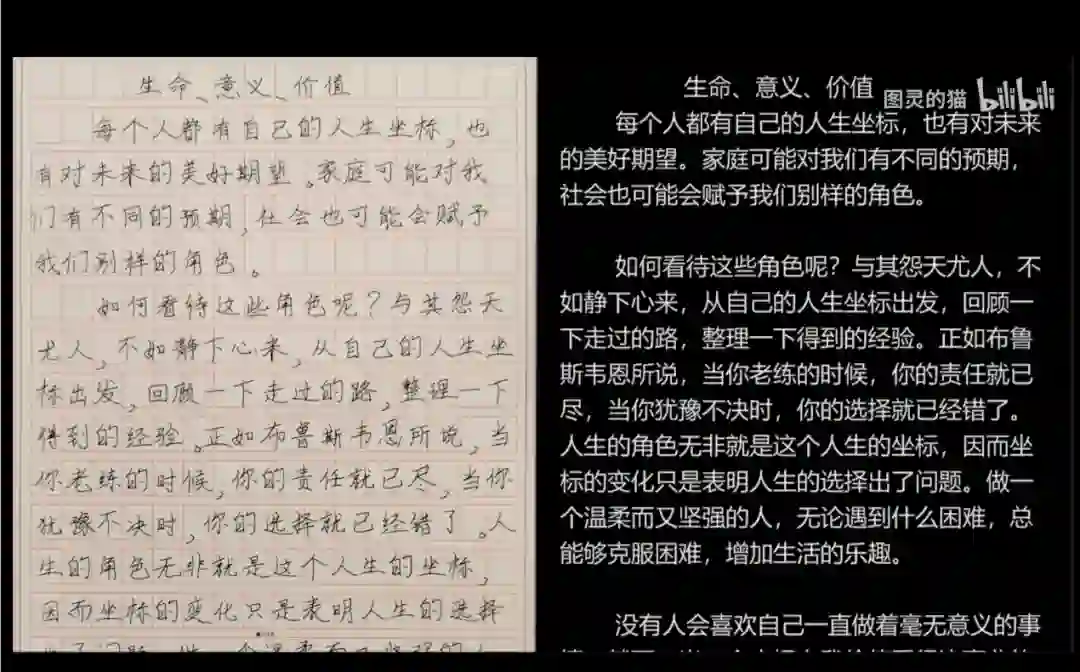 生命、意义、价值
每个人都有自己的人生坐标,也
有对未来的美好期望。家庭可能对我
们有不同的预期,社会也可能会赋予
我们别样的角色。
如何看待这些角色呢?与其怨天
尤人,不如静下心来,从自己的人生坐
标出发,回顾一下走过的路,整理一下
得到的经验。正如布鲁斯韦恩所说,当
你老练的时候,你的责任就已尽,当你
犹豫不决时,你的选择就已经错了。人
生的角色无非就是这个人生的坐标,
因而坐标的变化只是表明人生的选择
生命、意义、价值
图灵的猫 bilibili
每个人都有自己的人生坐标,也有对未来
的美好期望。家庭可能对我们有不同的预期,
社会也可能会赋予我们别样的角色。
如何看待这些角色呢?与其怨天尤人,不
如静下心来,从自己的人生坐标出发,回顾一
下走过的路,整理一下得到的经验。正如布鲁
斯韦恩所说,当你老练的时候,你的责任就已
尽,当你犹豫不决时,你的选择就已经错了。
人生的角色无非就是这个人生的坐标,因而坐
标的变化只是表明人生的选择出了问题。做一
个温柔而又坚强的人,无论遇到什么困难,总
能够克服困难,增加生活的乐趣。
没有人会喜欢自己一直做着毫无意义的事